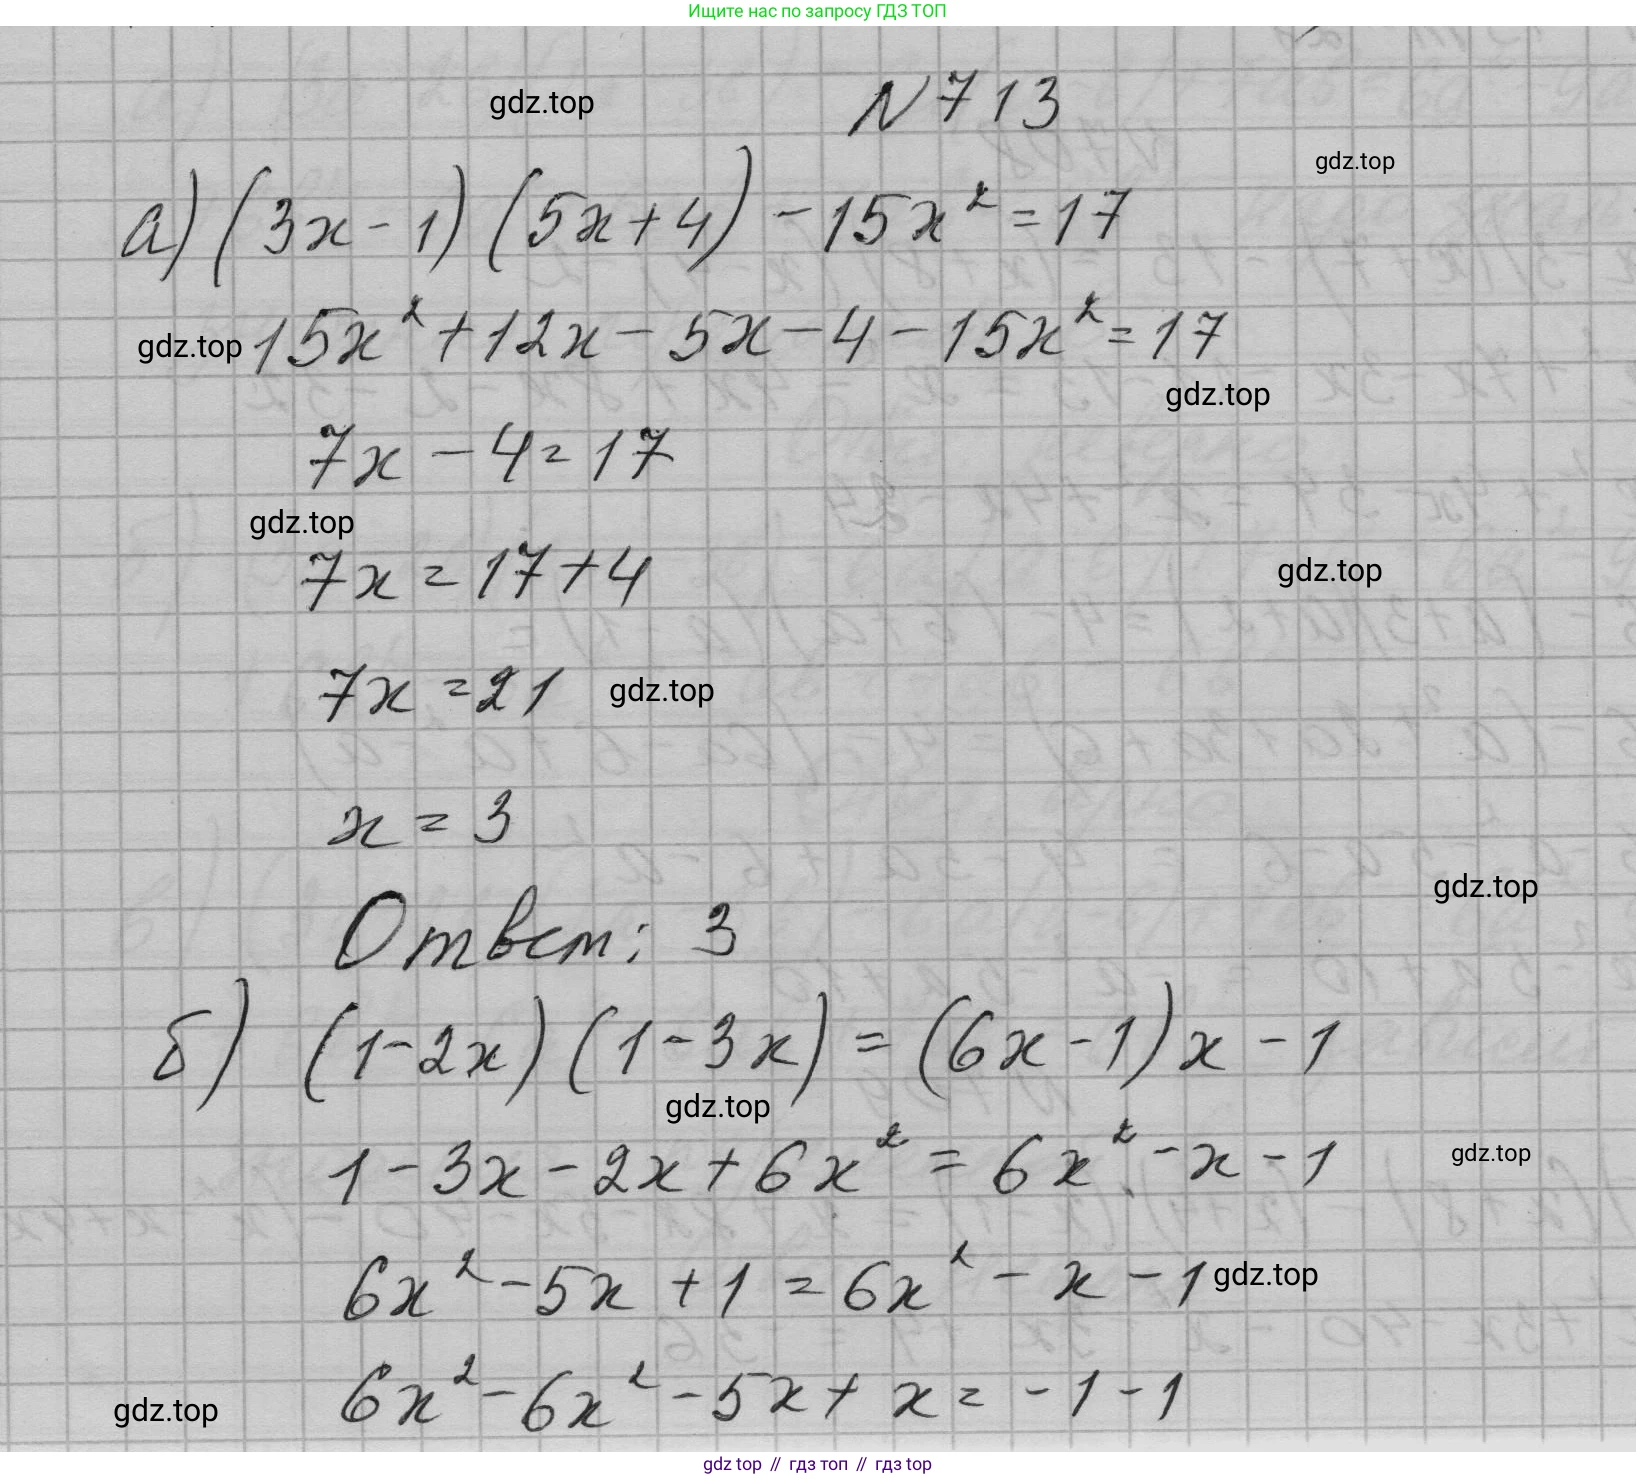 Ищите нас по запросу ГДЗ ТОП
gdz.top
N 713
gdz.top
а) (3x - 1) (5x + 4) - 15x² = 17
gdz.top
15x² + 12x - 5x - 4 - 15x² = 17
gdz.top
7x - 4 = 17
gdz.top
7x = 17 + 4
gdz.top
7x = 21
gdz.top
x = 3
gdz.top
Ответ: 3
б) (1 - 2x) (1 - 3x) = (6x - 1) x - 1
gdz.top
1 - 3x - 2x + 6x² = 6x² - x - 1
gdz.top
6x² - 5x + 1 = 6x² - x - 1
gdz.top
6x² - 6x² - 5x + x = -1 - 1
gdz.top
gdz top // гдз топ // гдз top